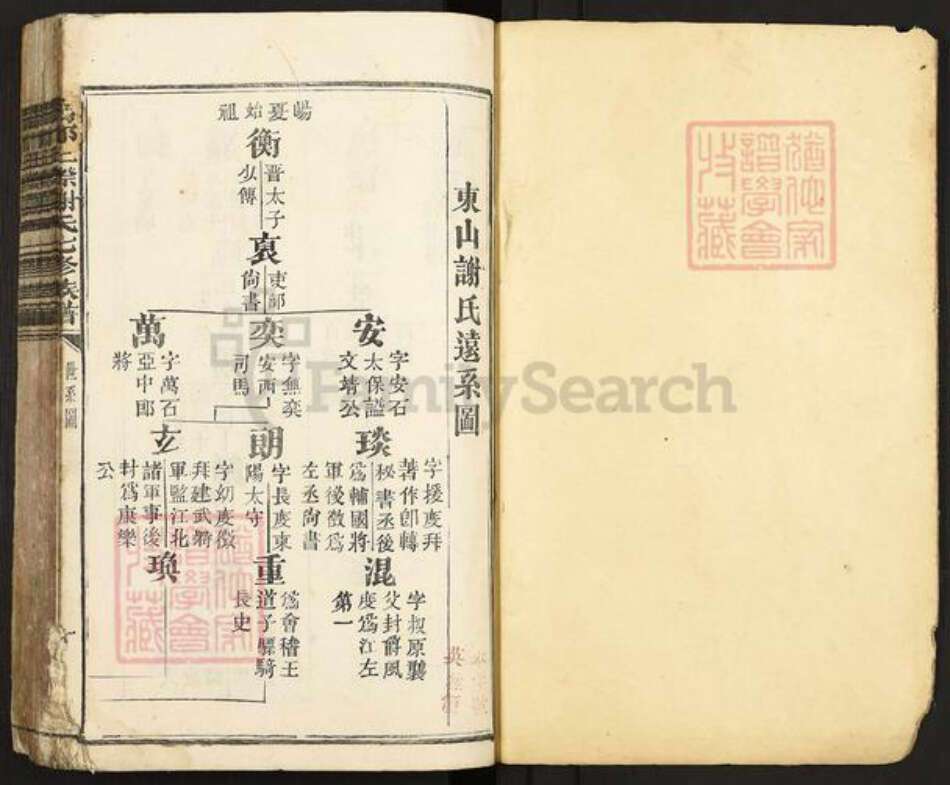 東山謝氏遠系圖
暘夏始祖
衡
晋太子
少傅
裒
吏部
尙書
安
字安石
太保諡
文靖公
奕
字無奕
安西
司馬
萬
字萬石
亞中郎
將
琰
字援度拜
著作郎轉
秘書丞後
爲輔國將
軍後徵爲
左丞尙書
朗
字長度東
陽太守
玄
字幼度徵
拜建武將
軍監江北
諸軍事後
封爲康樂
公
混
字叔原襲
父封爵風
度爲江左
第一
重
爲會稽王
道子驃騎
長史
瑍
謝氏七修族譜
世系圖
一
FamilySearch